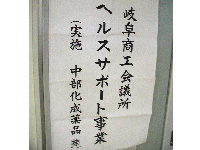 岐阜商工会議所
ヘルスサポート事業
(実施 中部化成薬品㈱)